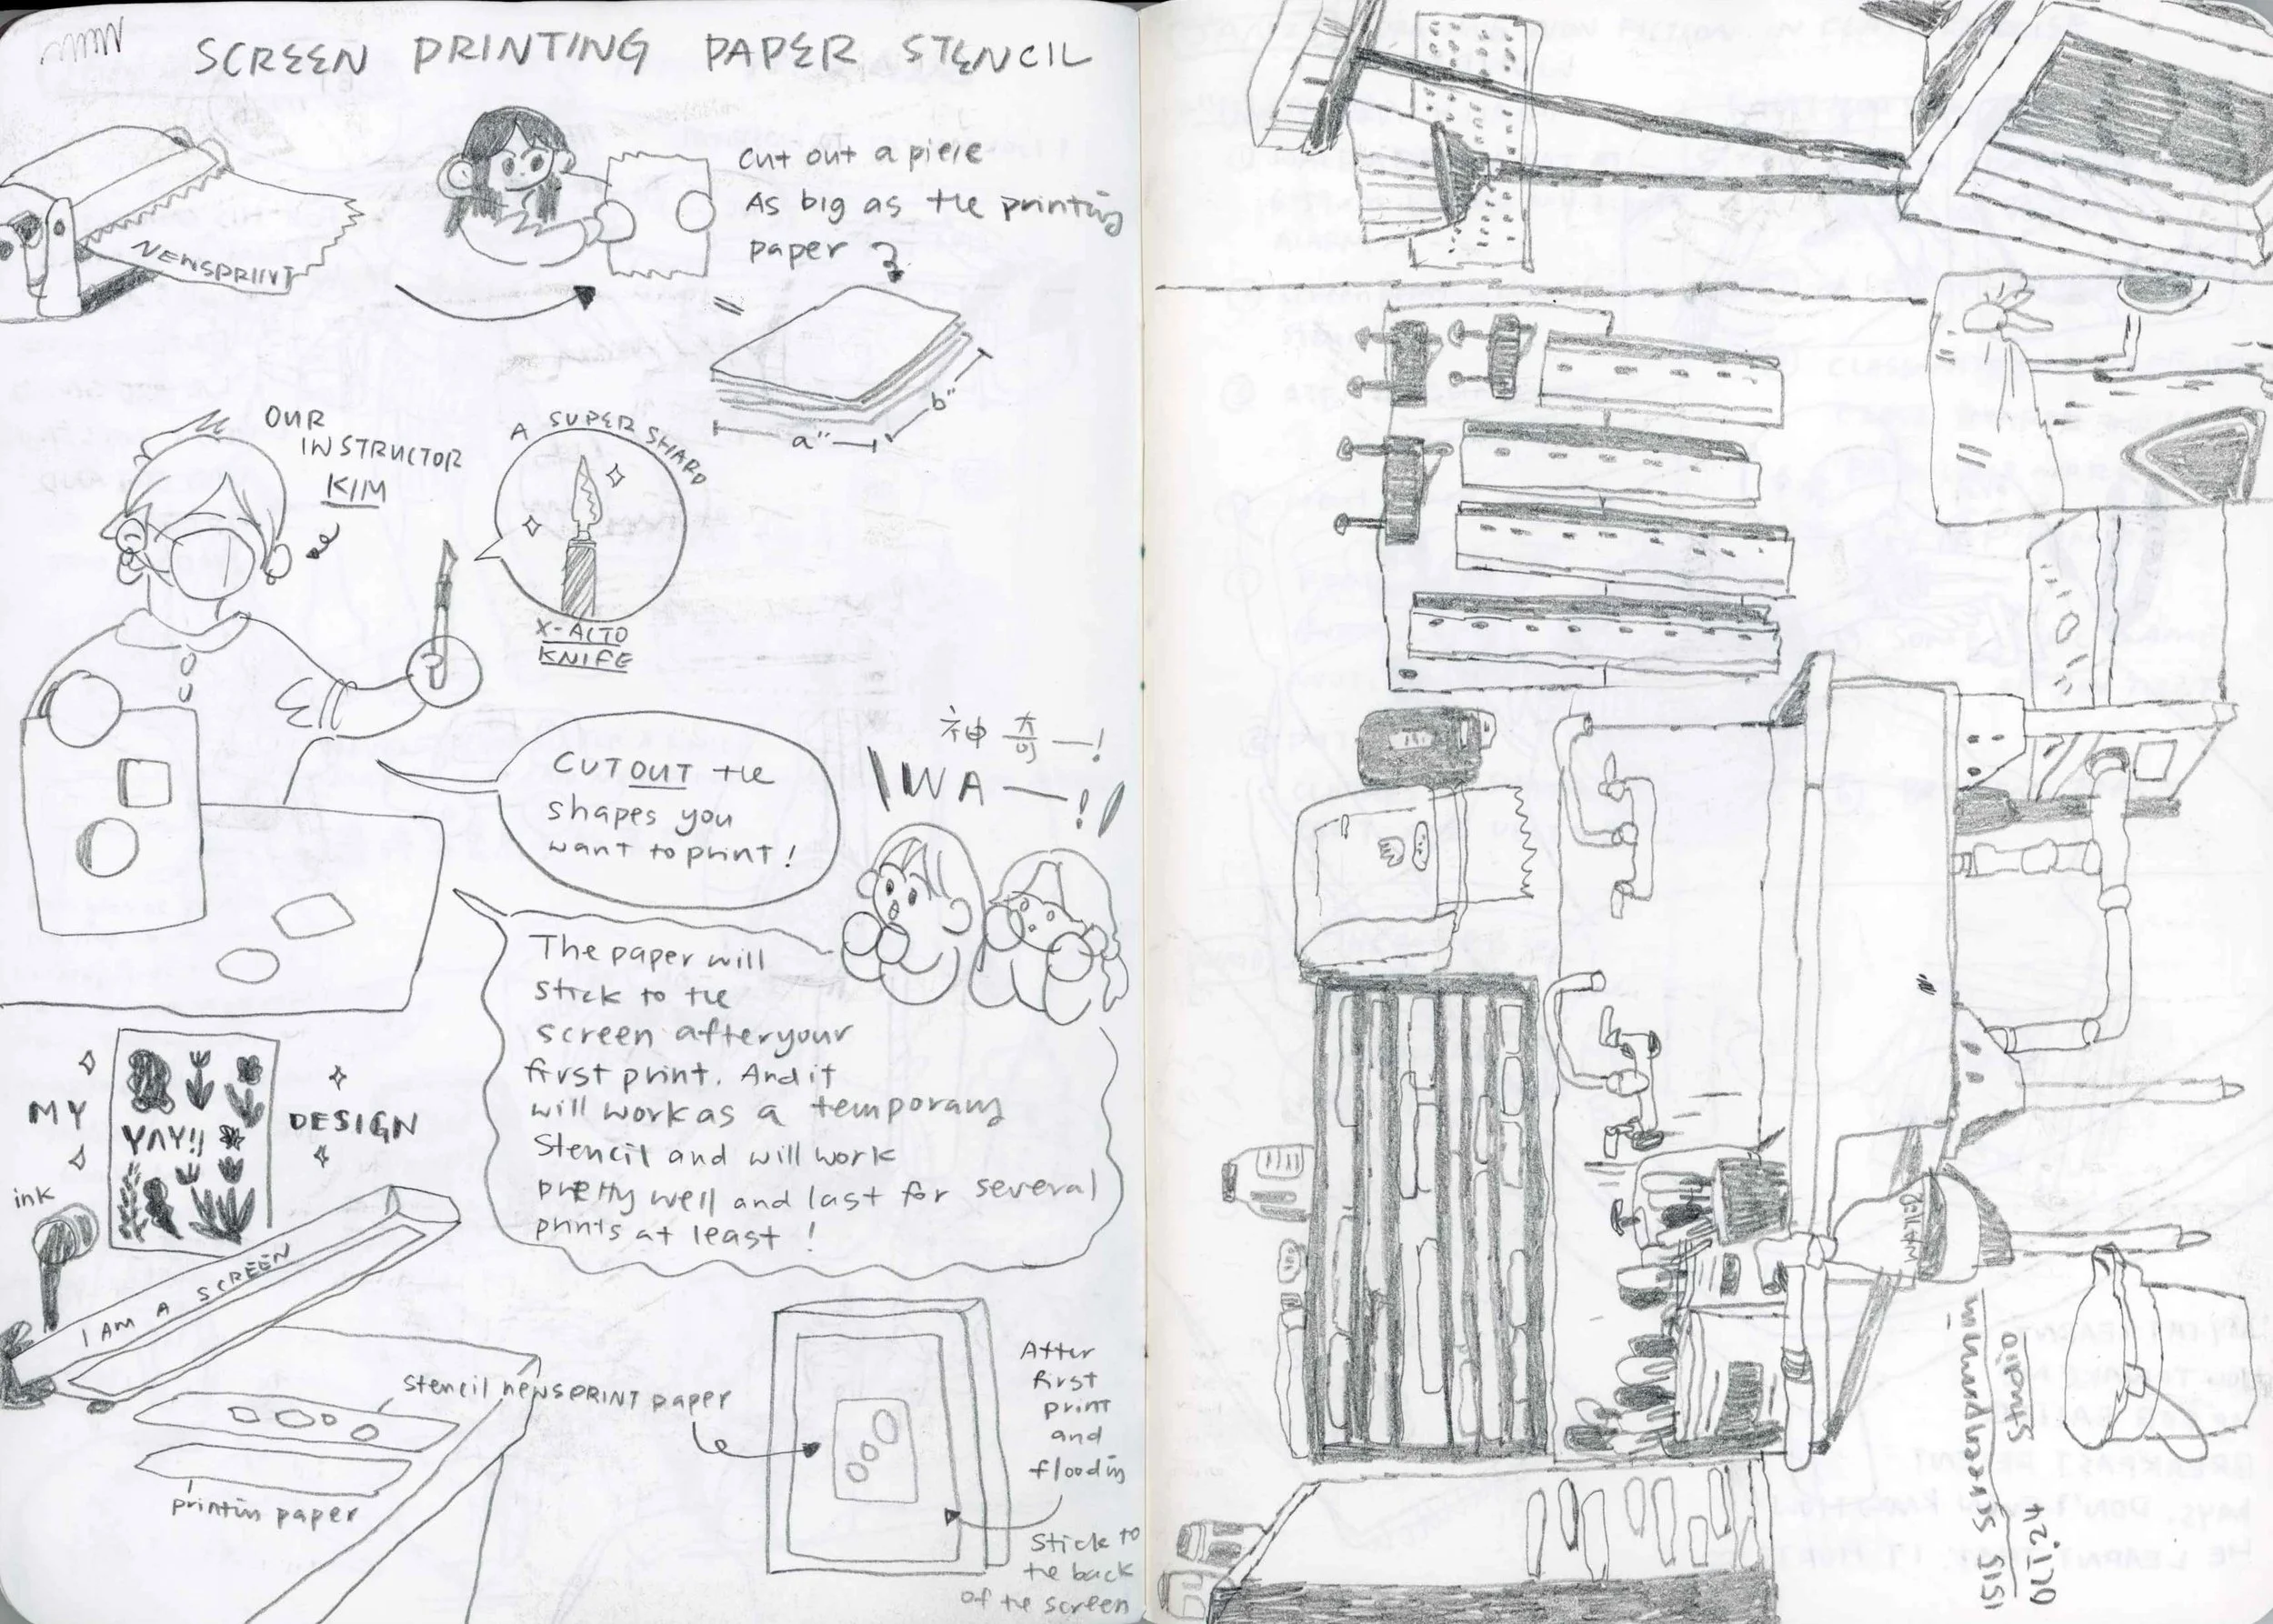 SCREEN PRINTING PAPER STENCIL
NEWSPRINT
cut out a piece
As big as the printing
paper
=
a"
b"
OUR
INSTRUCTOR
KIM
A SUPER SHARD
X-ACTO
KNIFE
CUTOUT the
shapes you
want to print!
神奇—!
WA—!
The paper will
stick to the
screen after your
first print. And it
will work as a temporary
stencil and will work
pretty well and last for several
prints at least!
MY
DESIGN
YAY!!
ink
I AM A SCREEN
stencil newsPRINT paper
printin paper
After
first
print
and
floodin
Stick to
the back
of the screen
Studio
01.24